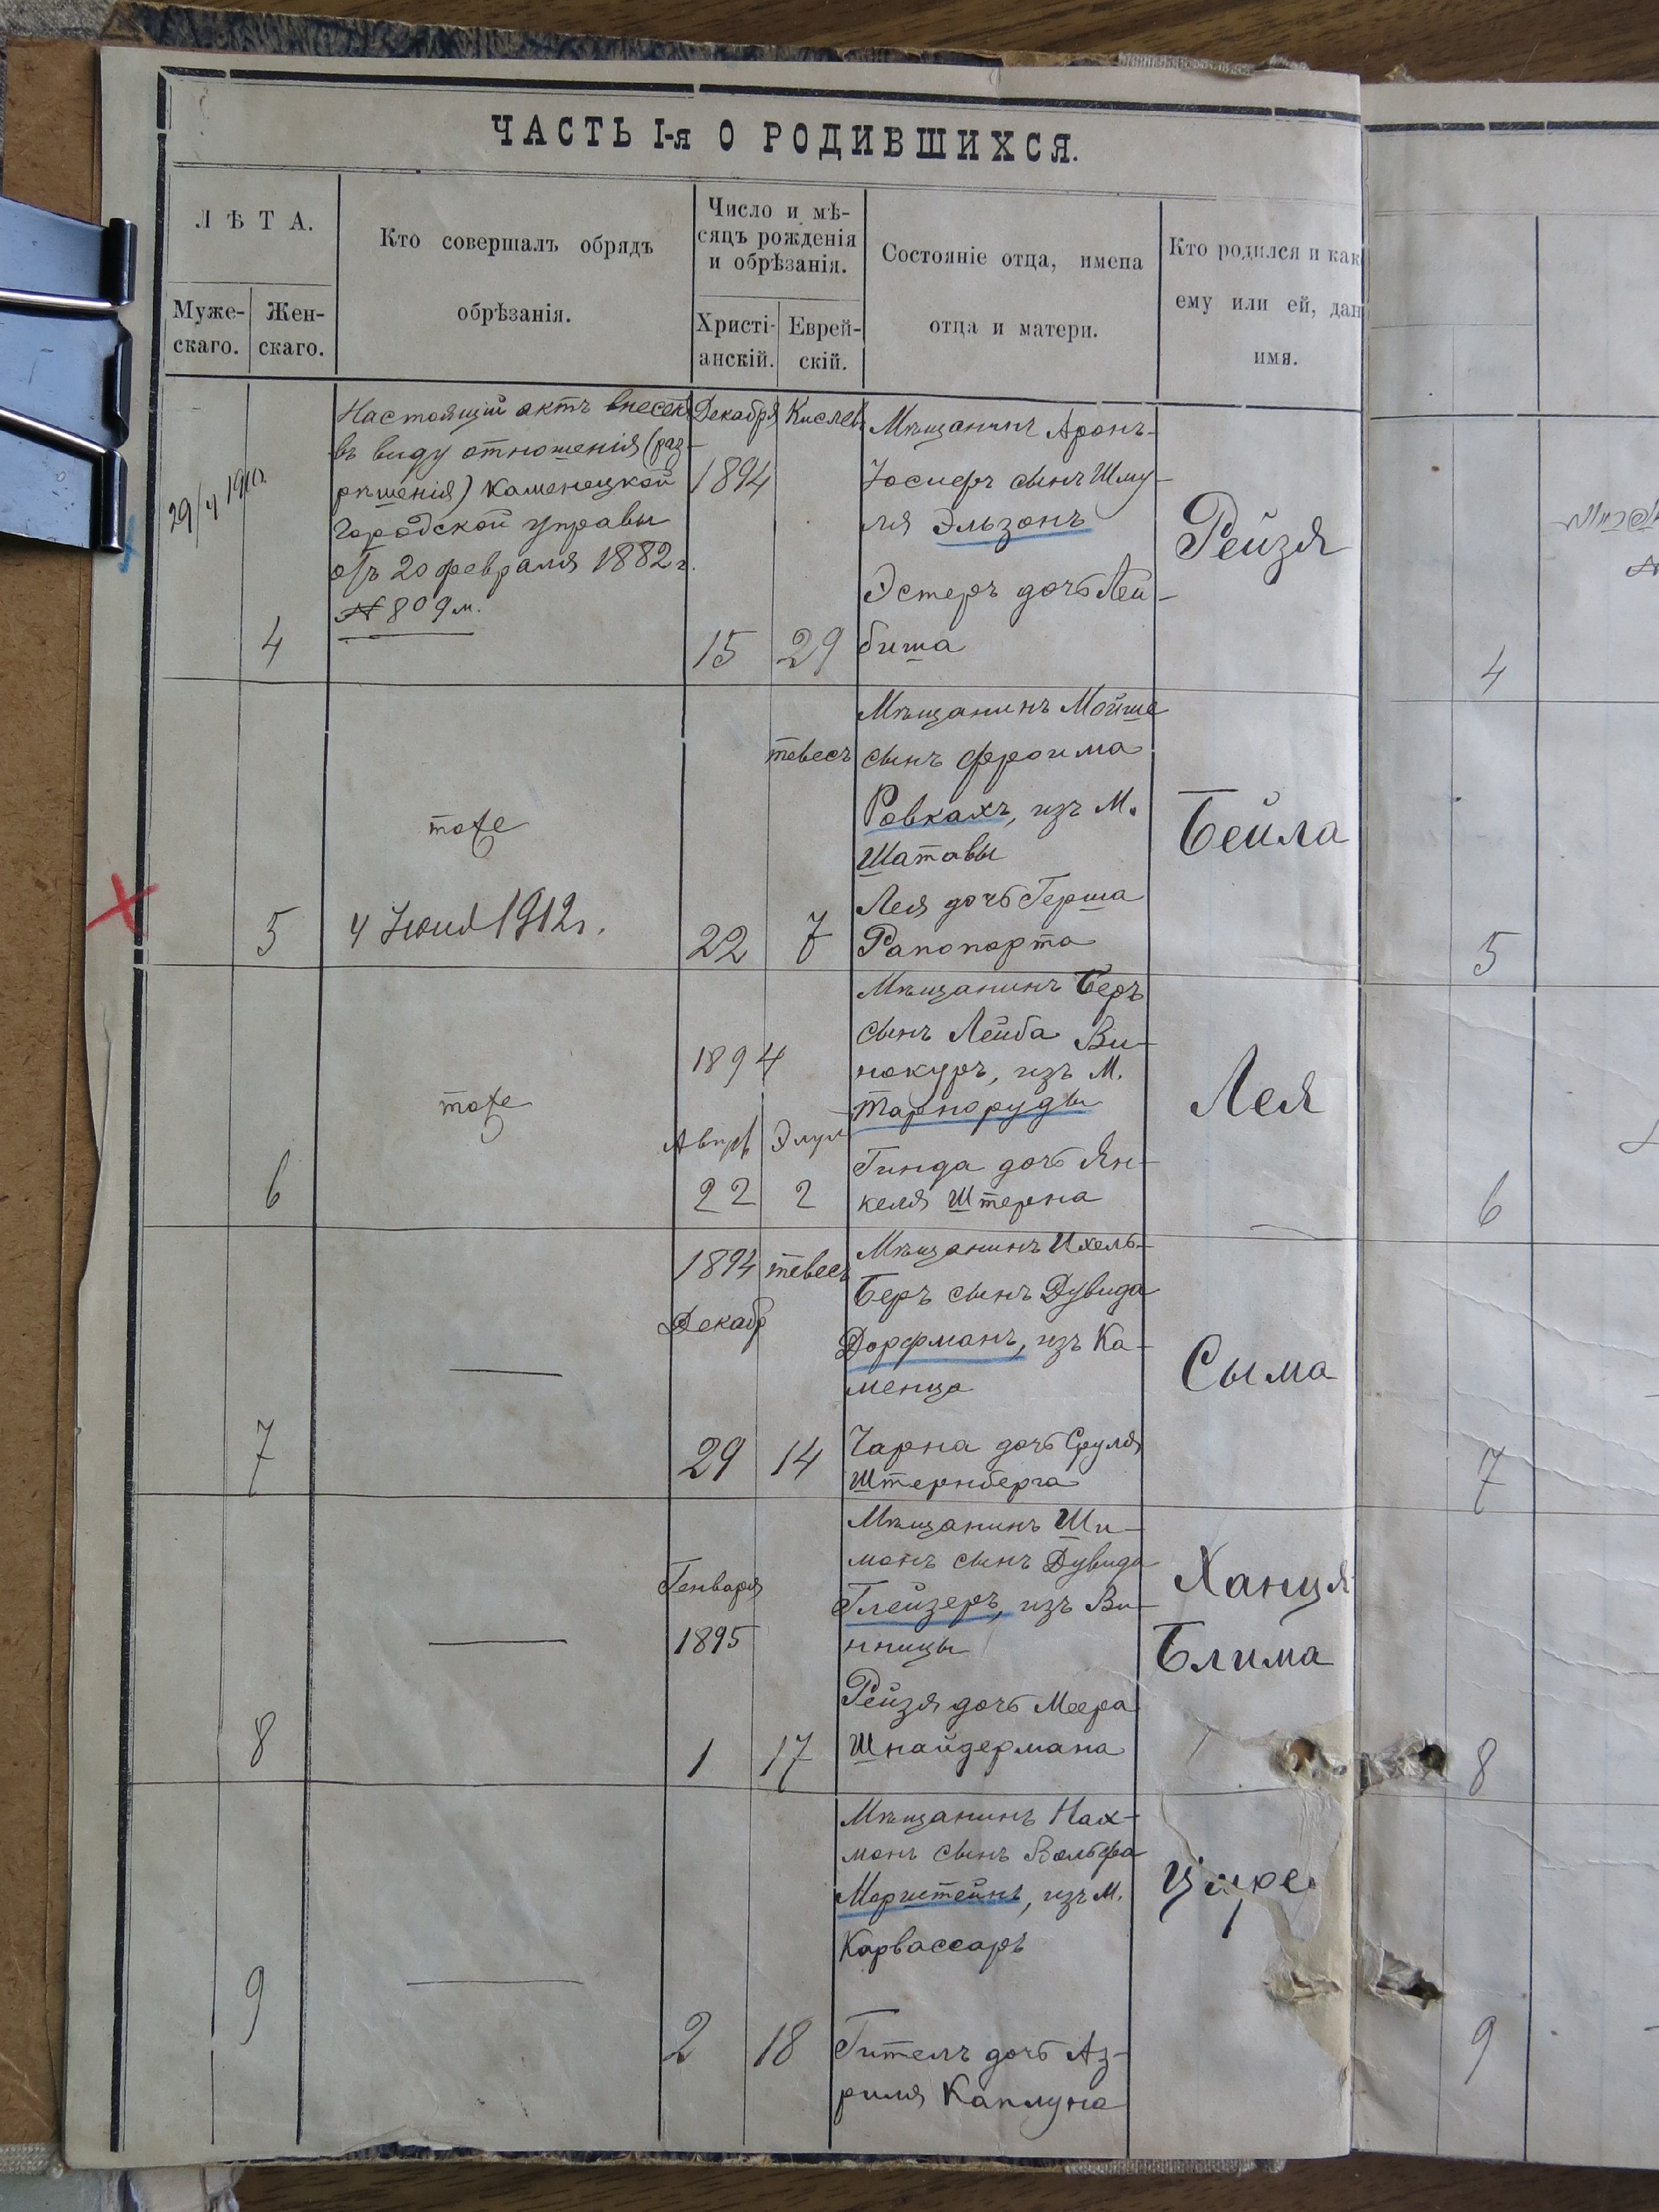 ЧАСТЬ I-я О РОДИВШИХСЯ.
ЛѢТА.
Муже-
скаго.
Жен-
скаго.
Кто совершалъ обрядъ
обрѣзанія.
Число и мѣ-
сяцъ рожденія
и обрѣзанія.
Христі-
анскій.
Еврей-
скій.
Состояніе отца, имена
отца и матери.
Кто родился и как
ему или ей, дан
имя.
4
Настоящій актъ внесенъ
въ виду отношенія (раз-
рѣшенія) Каменецкой
Городской Управы
отъ 20 февраля 1882 г.
№ 809 м.
Декабря
1894
15
Кислевъ
29
Мѣщанинъ Аронъ-
Іосифъ сынъ Шму-
ля Эльзонъ
Эстеръ дочь Лей-
биша
Рейзя
4
5
тоже
4 Іюня 1912 г.
22
тевесъ
7
Мѣщанинъ Мойше
сынъ Фроима
Ровкахъ, изъ М.
Шатавы
Лея дочь Герша
Рапопорта
Бейла
5
6
тоже
1894
22
Элул
2
Мѣщанинъ Беръ
сынъ Лейба Ви-
нокуръ, изъ М.
Тарноруды
Гинда дочь Ян-
келя Штерна
Лея
6
7
1894
Декабр
29
тевесъ
14
Мѣщанинъ Ихель-
Беръ сынъ Дувида
Дорфманъ, изъ Ка-
менца
Чарна дочь Сруля
Штернберга
Сыма
7
8
Генваря
1895
1
17
Мѣщанинъ Ши-
монъ сынъ Дувида
Глейзеръ, изъ Ви-
нницы
Рейзя дочь Меера
Шнайдермана
Ханця
Блима
8
9
2
18
Мѣщанинъ Нах-
манъ сынъ Вольфа
изъ М.
Карвассаръ
Гителъ дочь Аз-
риля Каплуна
9